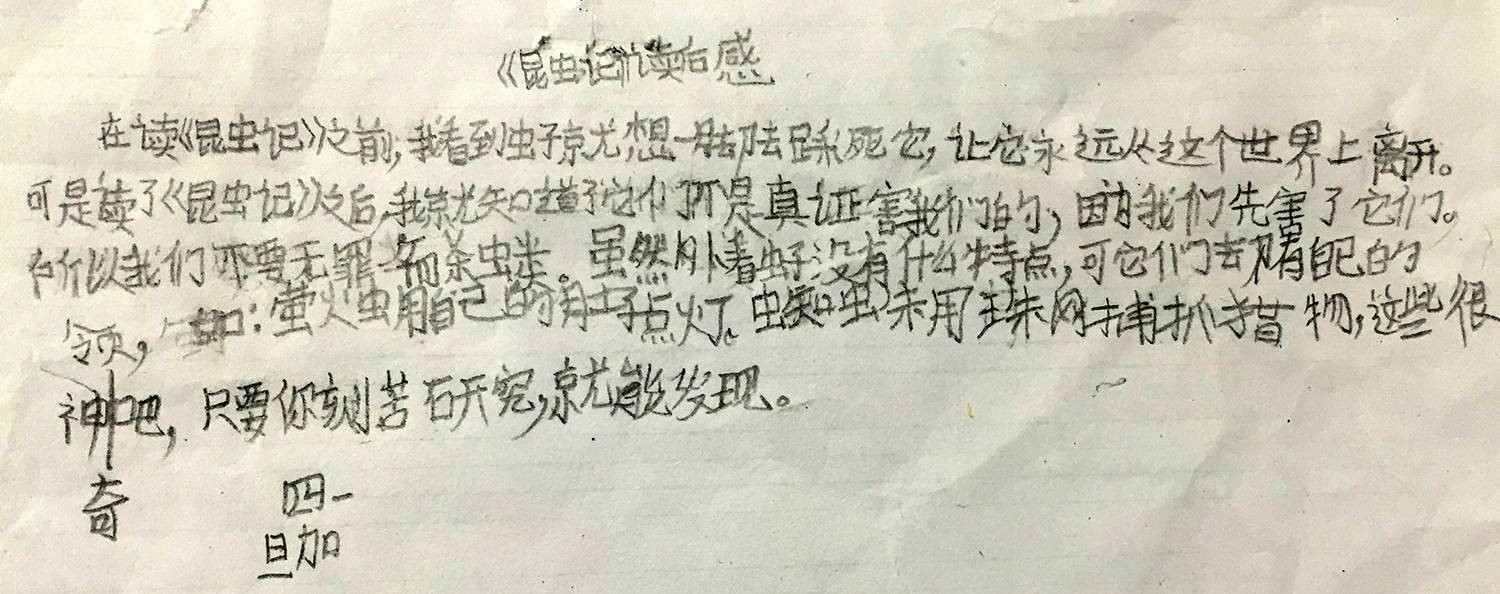 《昆虫记》读后感
在读《昆虫记》之前,我看到虫子就想一脚去踩死它,让它永远从这个世界上离开。
可是读了《昆虫记》之后,我就知道了它们不是真正害我们的,因为我们先害了它们。
所以我们不要无罪而杀虫类。虽然外看虫子没有什么特点,可它们去有自己的
领,如:萤火虫用自己的肚子点灯。蜘蛛用蛛网捕抓猎物,这些很
神吧,只要你刻苦研究,就能发现。
奇
四一
旦加